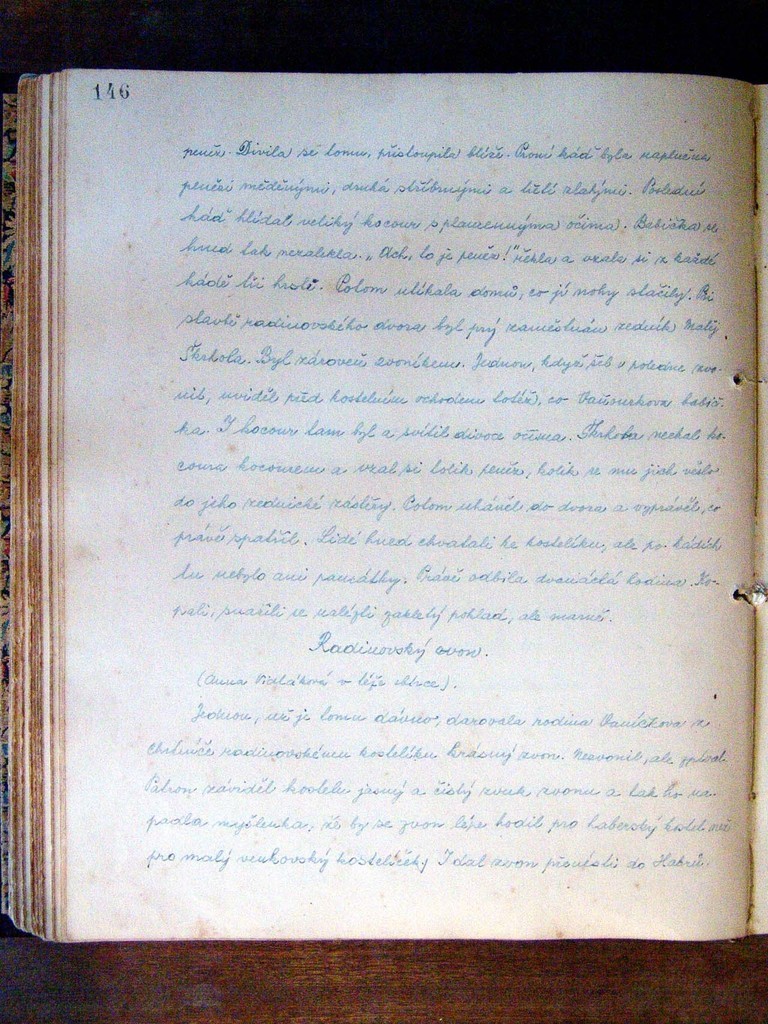 146
peněz. Divila se tomu, přistoupila blíže. První káď byla naplněna
penězi měděnými, druhá stříbrnými a třetí zlatými. Poslední
káď hlídal veliký kocour s plamennýma očima. Babička se
hned tak nezalekla. „Ach, to je peněz!" řekla a vzala si z každé
kádě tři hrstě. Potom utíkala domů, co jí nohy stačily. Při
stavbě radinovského dvora byl prý zaměstnán zedník Matěj
Škrhola. Byl zároveň zvoníkem. Jednou, když šel v poledne zvo-
nit, uviděl před kostelním vchodem totéž, co Vaňourkova babič-
ka. I kocour tam byl a svítil divoce očima. Škrhola nechal ko-
coura kocourem a vzal si tolik peněz, kolik se mu jich vešlo
do jeho zednické zástěry. Potom uháněl do dvora a vyprávěl, co
právě spatřil. Lidé hned chvátali ke kostelíku, ale po kádích
tu nebylo ani památky. Právě odbila dvanáctá hodina. Ko-
pali, snažili se nalézti zakletý poklad, ale marně.
Radinovský zvon.
(Anna v téže sbírce).
Jednou, už je tomu dávno, darovala rodina Vaníčkova z
radinovskému kostelíku krásný zvon. Nezvonil, ale zpíval.
Patron záviděl kostelu jasný a čistý zvuk zvonu a tak ho na-
padla myšlenka, že by se zvon lépe hodil pro haberský kostel než
pro malý venkovský kostelíček. I dal zvon přenésti do Haber.